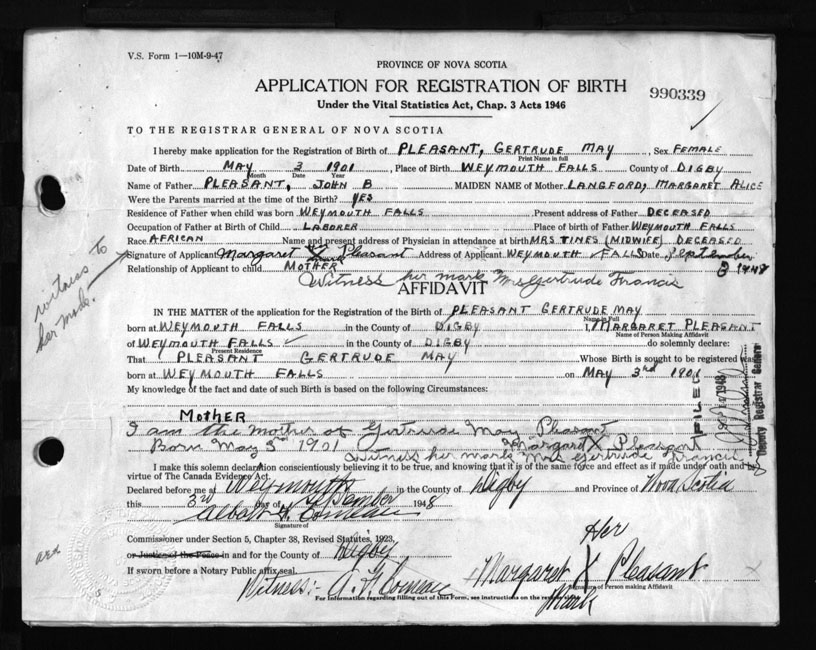 V.S. Form 1—10M-9-47
PROVINCE OF NOVA SCOTIA
APPLICATION FOR REGISTRATION OF BIRTH
990339
Under the Vital Statistics Act, Chap. 3 Acts 1946
TO THE REGISTRAR GENERAL OF NOVA SCOTIA
I hereby make application for the Registration of Birth of PLEASANT, GERTRUDE MAY, Sex FEMALE
Print Name in full
Date of Birth MAY 3 1901, Place of Birth WEYMOUTH FALLS County of DIGBY
Month Date Year
Name of Father PLEASANT, JOHN B MAIDEN NAME of Mother LANGFORD, MARGARET ALICE
Were the Parents married at the time of the Birth? YES
Residence of Father when child was born WEYMOUTH FALLS Present address of Father DECEASED
Occupation of Father at Birth of Child LABORER Place of birth of Father WEYMOUTH FALLS
Race AFRICAN Name and present address of Physician in attendance at birth MRS TINES (MIDWIFE) DECEASED
Signature of Applicant Margaret X Pleasant Address of Applicant WEYMOUTH FALLS Date September
Relationship of Applicant to child MOTHER 3 1948
Witness her mark Mrs Gertrude Francis
witness to
her mark.
AFFIDAVIT
IN THE MATTER of the application of the Registration of the Birth of PLEASANT GERTRUDE MAY
Name in Full
born at WEYMOUTH FALLS in the County of DIGBY I, MARGARET PLEASANT
Name of Person Making Affidavit
of WEYMOUTH FALLS in the County of DIGBY do solemnly declare:
Present Residence
That PLEASANT GERTRUDE MAY Whose Birth is sought to be registered was
born at WEYMOUTH FALLS on MAY 3rd 1901
My knowledge of the fact and date of such Birth is based on the following Circumstances:
MOTHER
I am the mother of Gertrude May Pleasant
Born May 3 1901 Margaret X Pleasant
Witness her mark Mrs Gertrude Francis
FILED
1948
Deputy Registrar General
I make this solemn declaration conscientiously believing it to be true, and knowing that it is of the same force and effect as if made under oath and by
virtue of The Canada Evidence Act.
Declared before me at Weymouth in the County of Digby and Province of Nova Scotia
this 3rd day of September 1948
Albert H Comeau
Signature of
Commissioner under Section 5, Chapter 38, Revised Statutes, 1923,
or Justice of the Peace in and for the County of Digby
If sworn before a Notary Public affix seal.
Her
Margaret X Pleasant
Mark
Signature of Person making Affidavit
Witness:- A. H Comeau
For information regarding filling out of this Form, see instructions on the